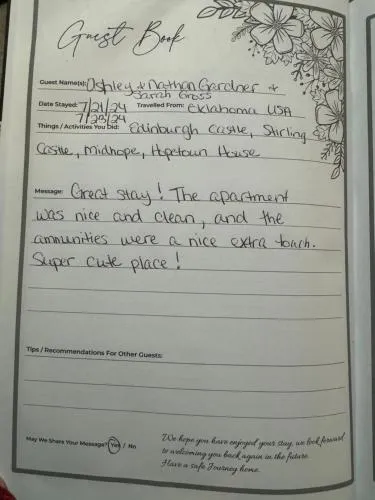 Guest Book
Guest Name(s): Ashley + Nathan Gardner +
Sarah Gross
Date Stayed: 7/21/24 Travelled From: Oklahoma USA
7/23/24
Things / Activities You Did: Edinburgh Castle, Stirling
Castle, Midhope, Hopetown House
Message: Great stay! The apartment
was nice and clean, and the
ammunities were a nice extra touch.
Super cute place!
Tips / Recommendations For Other Guests:
May We Share Your Message? Yes / No
We hope you have enjoyed your stay, we look forward
to welcoming you back again in the future.
Have a safe Journey home.